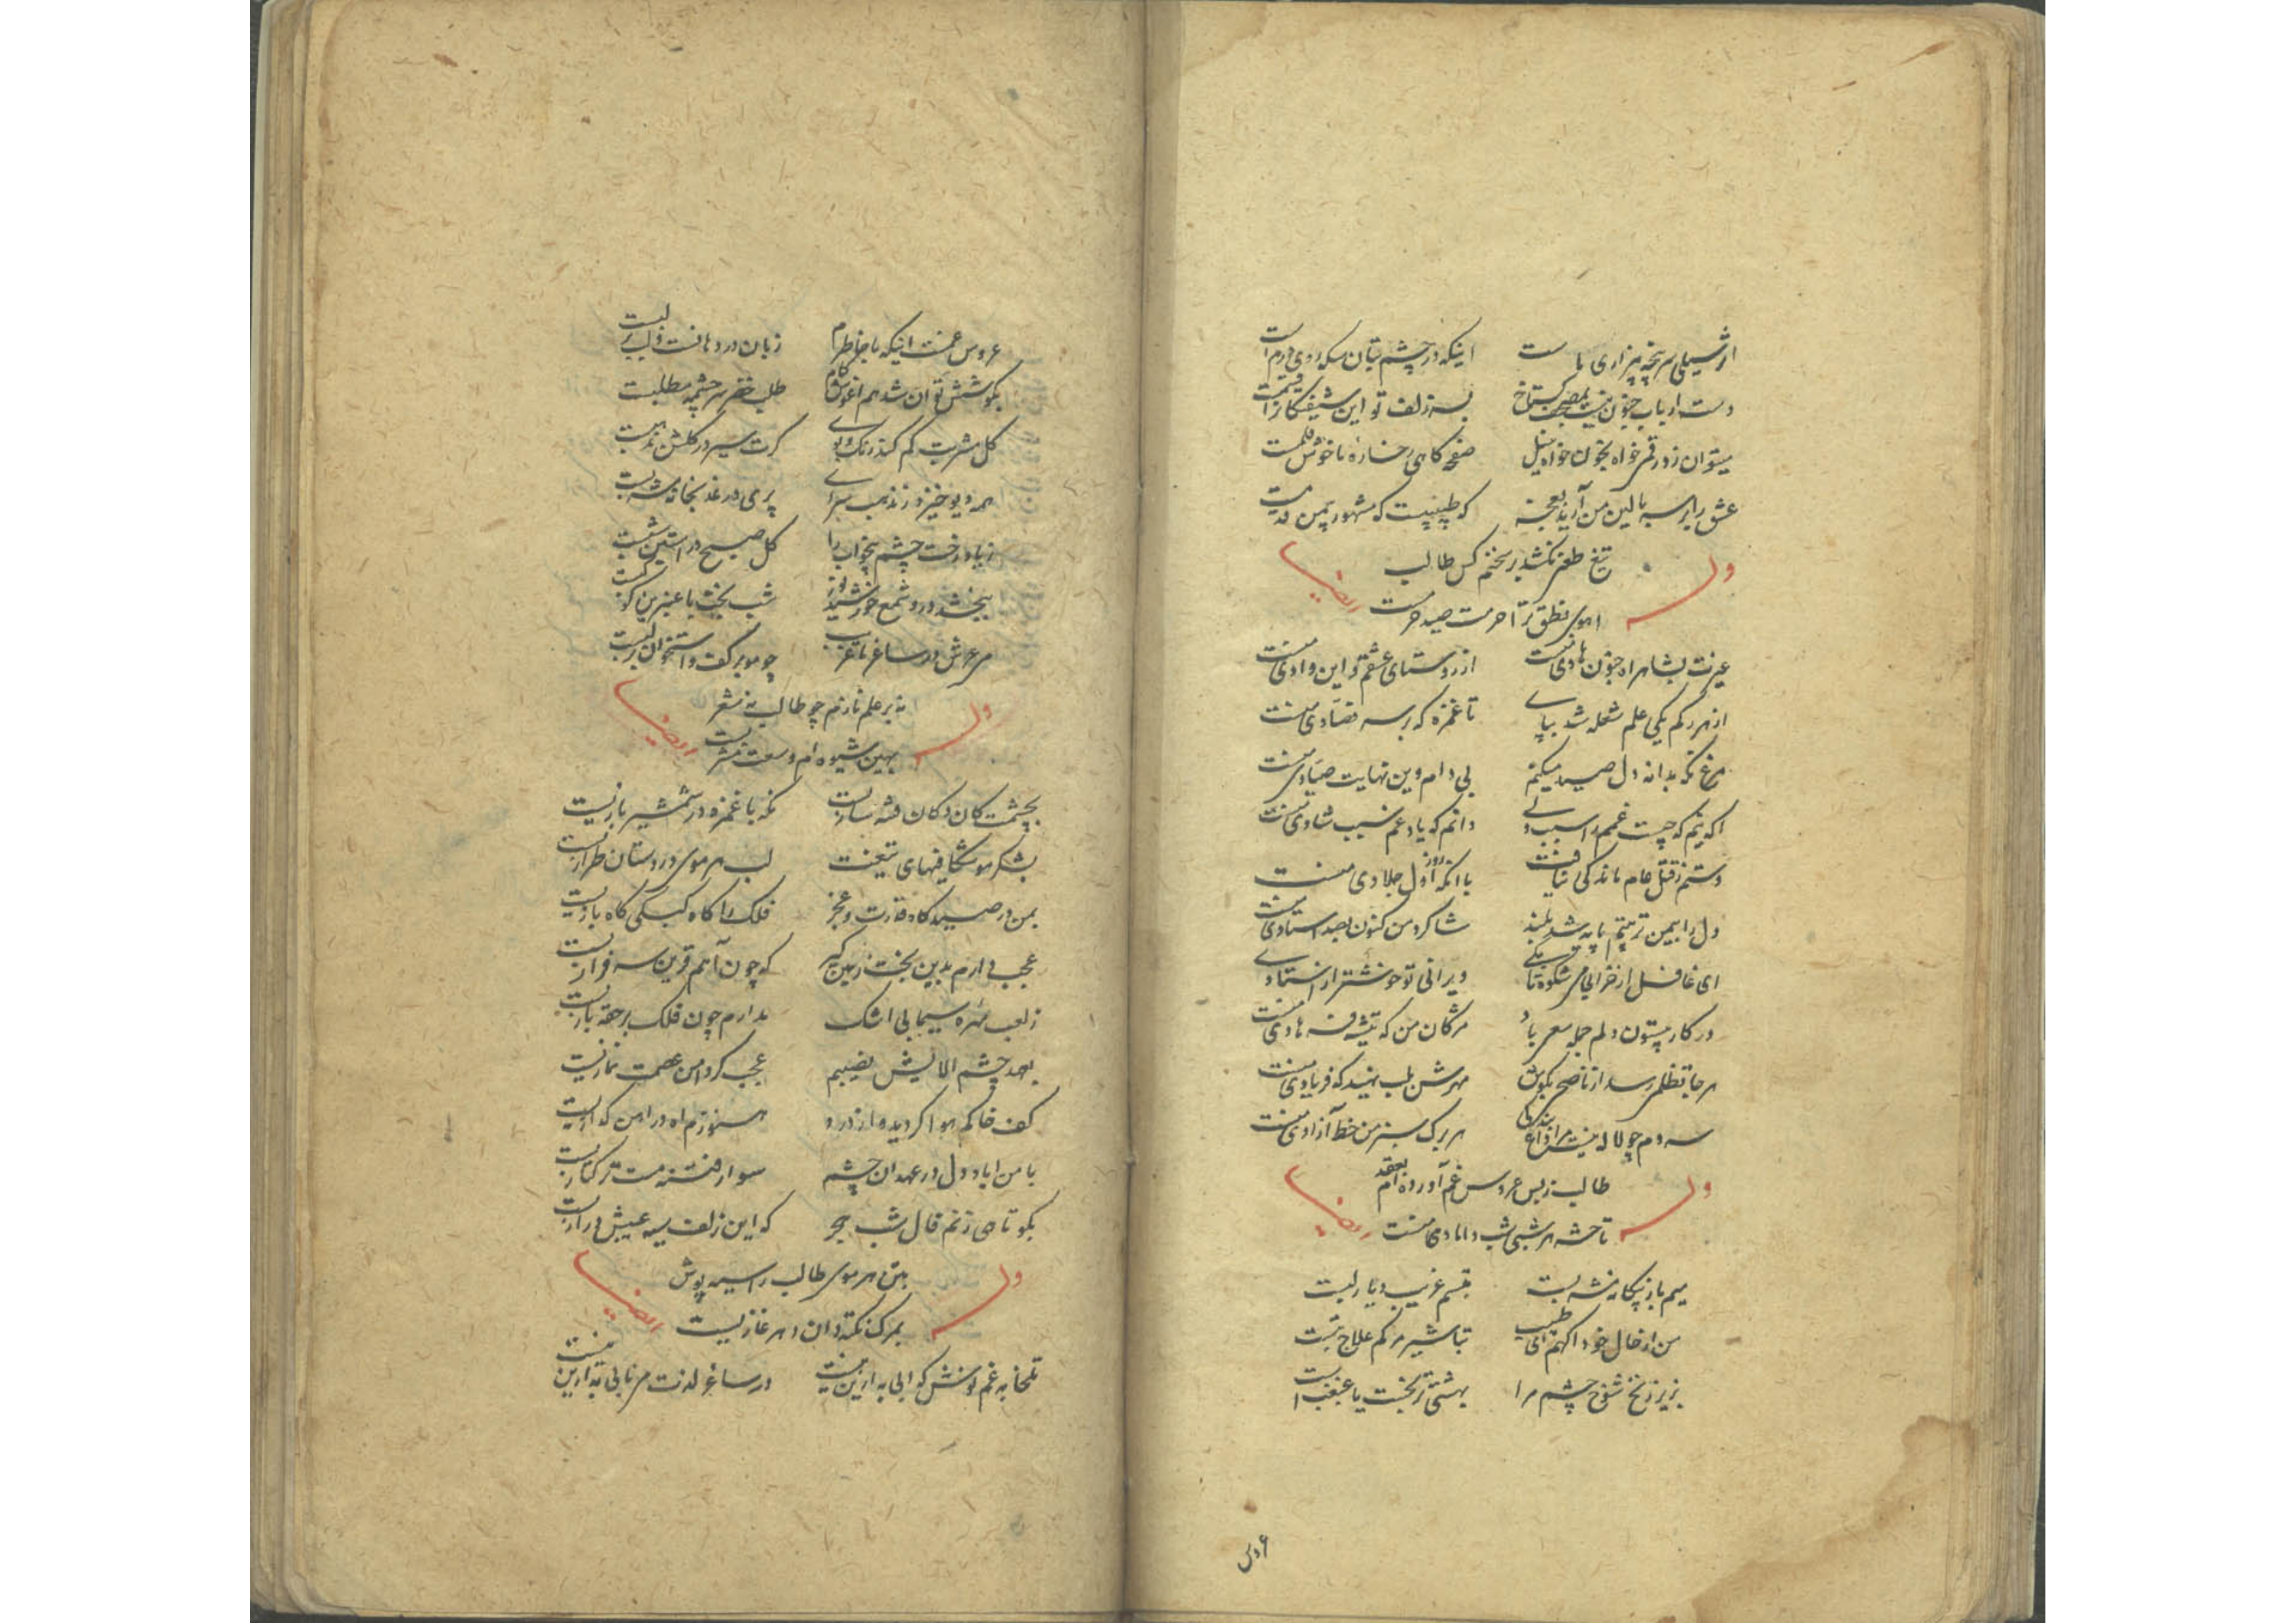 از سیلی سرپنجه بیزاری ما ست اینکه در چشم بتان سکه روی درم است
دست ارباب جنون نیست گستاخ بسه زلف تو این را قسمست
میتوان زد رقم خواه بخون خواه بنیل صفحه کاهی رخساره ما خوش قلمست
عشق را بر سر بالین من آرید که طبیبیست که مشهور بیمن قدمست
تیغ طعنم نکشد بر سخنم کس طالب
وله ایضا
اهوی نطق ترا حرمت صید حرمست
غیرت بشاهراه جنون هادی منست از روستای عشقم و این وادی منست
از هر رکم یکی علم شعله شد بپای تا غمزه که بر سر فصادی منست
مرغ نکه بدانه دل صید میکنم بی دام و این نهایت صیادی منست
اکه نیم که چیست غمم را سبب ولی دانم که یاد غم سبب شادی منست
دستم ز قتل عام ماندکی نیافت با انکه روز اول جلادی منست
دل را بیمن تربیتم پایه شد بلند شاکرد من کنون بصد استادی منست
ای غافل از خرابی من شکوه تا بکی ویرانی تو خوشتر از
در کار بیستون دلم جمله صرف باد مژکان من که تیشه فرهادی منست
هرجا تظلمی رسد از ناصح بکوش مهرش بلب نهید که فریادی منست
سر و دم چو لاله نیست مرا داغ بندکی هر برک سبز من خط آزادی منست
طالب ز بس عروس غم آورده ام بعقد
وله ایضا
تا حشر هر شبی شب دامادی منست
تبسم غریب دیار لبست
من از حال خود اکهم ای طبیب تباشیر مرکم علاج تبست
بزیر زنخ شوخ چشم مرا بهشتی ترنجست یا غبغب است
عروس
عروس غمت اینکه با خاطرم زبان در دهانست و لب بر لبست
بکوشش توان شد هم اغوش کام طلب خضر سرچشمه مطلبست
کل مشربت کم کند رنک و بوی کرت سیر در کلشن مذهبست
همه دیو خیزد ز تذهیب سرای پری در غلخانه مشربست
زیاد رخت چشم بیخواب را کل صبح در استین شبست
ببخشد در و شمع خورشید نور شب بخت ما عنبرین کوکبست
می عیش در ساغر ما غریب چو مو بر کف و استخوان بر لبست
نه بر علم نازم چو طالب نه شعر
وله ایضا
بهین شیوه ام وسعت مشربست
بچشمت کان دکان فتنه سازیست نکه با غمزه در شمشیر بازیست
بشکر موشکافیهای تیغت لب هر موی در دستان طرازیست
بمن در صیدکاه قدرت و عجز فلک را کاه کبکی کاه بازیست
عجب دارم بدین بخت زمین کیر که چون آهم قرین سرفرازیست
ز لعب مهره سیمابی اشک مدارم چون فلک بر حقه بازیست
بصد چشم الایش نصیبم عجب کر دامن عصمت نمازیست
کف خاکم هوا کردید و از درد هنوزم اه در دامن کدازیست
با من اباد دل در عهد ان چشم سوار فتنه مست ترکتازیست
بکو تا حی زنم فال شب هجر که این زلف سیه عیبش درازیست
بتن هر موی طالب را سیه پوش
وله ایضا
بمرک نکته دان اهر غازیست
تلخابه غم نوش که ابی به ازین نیست در ساغر لذت می نابی به ازین نیست